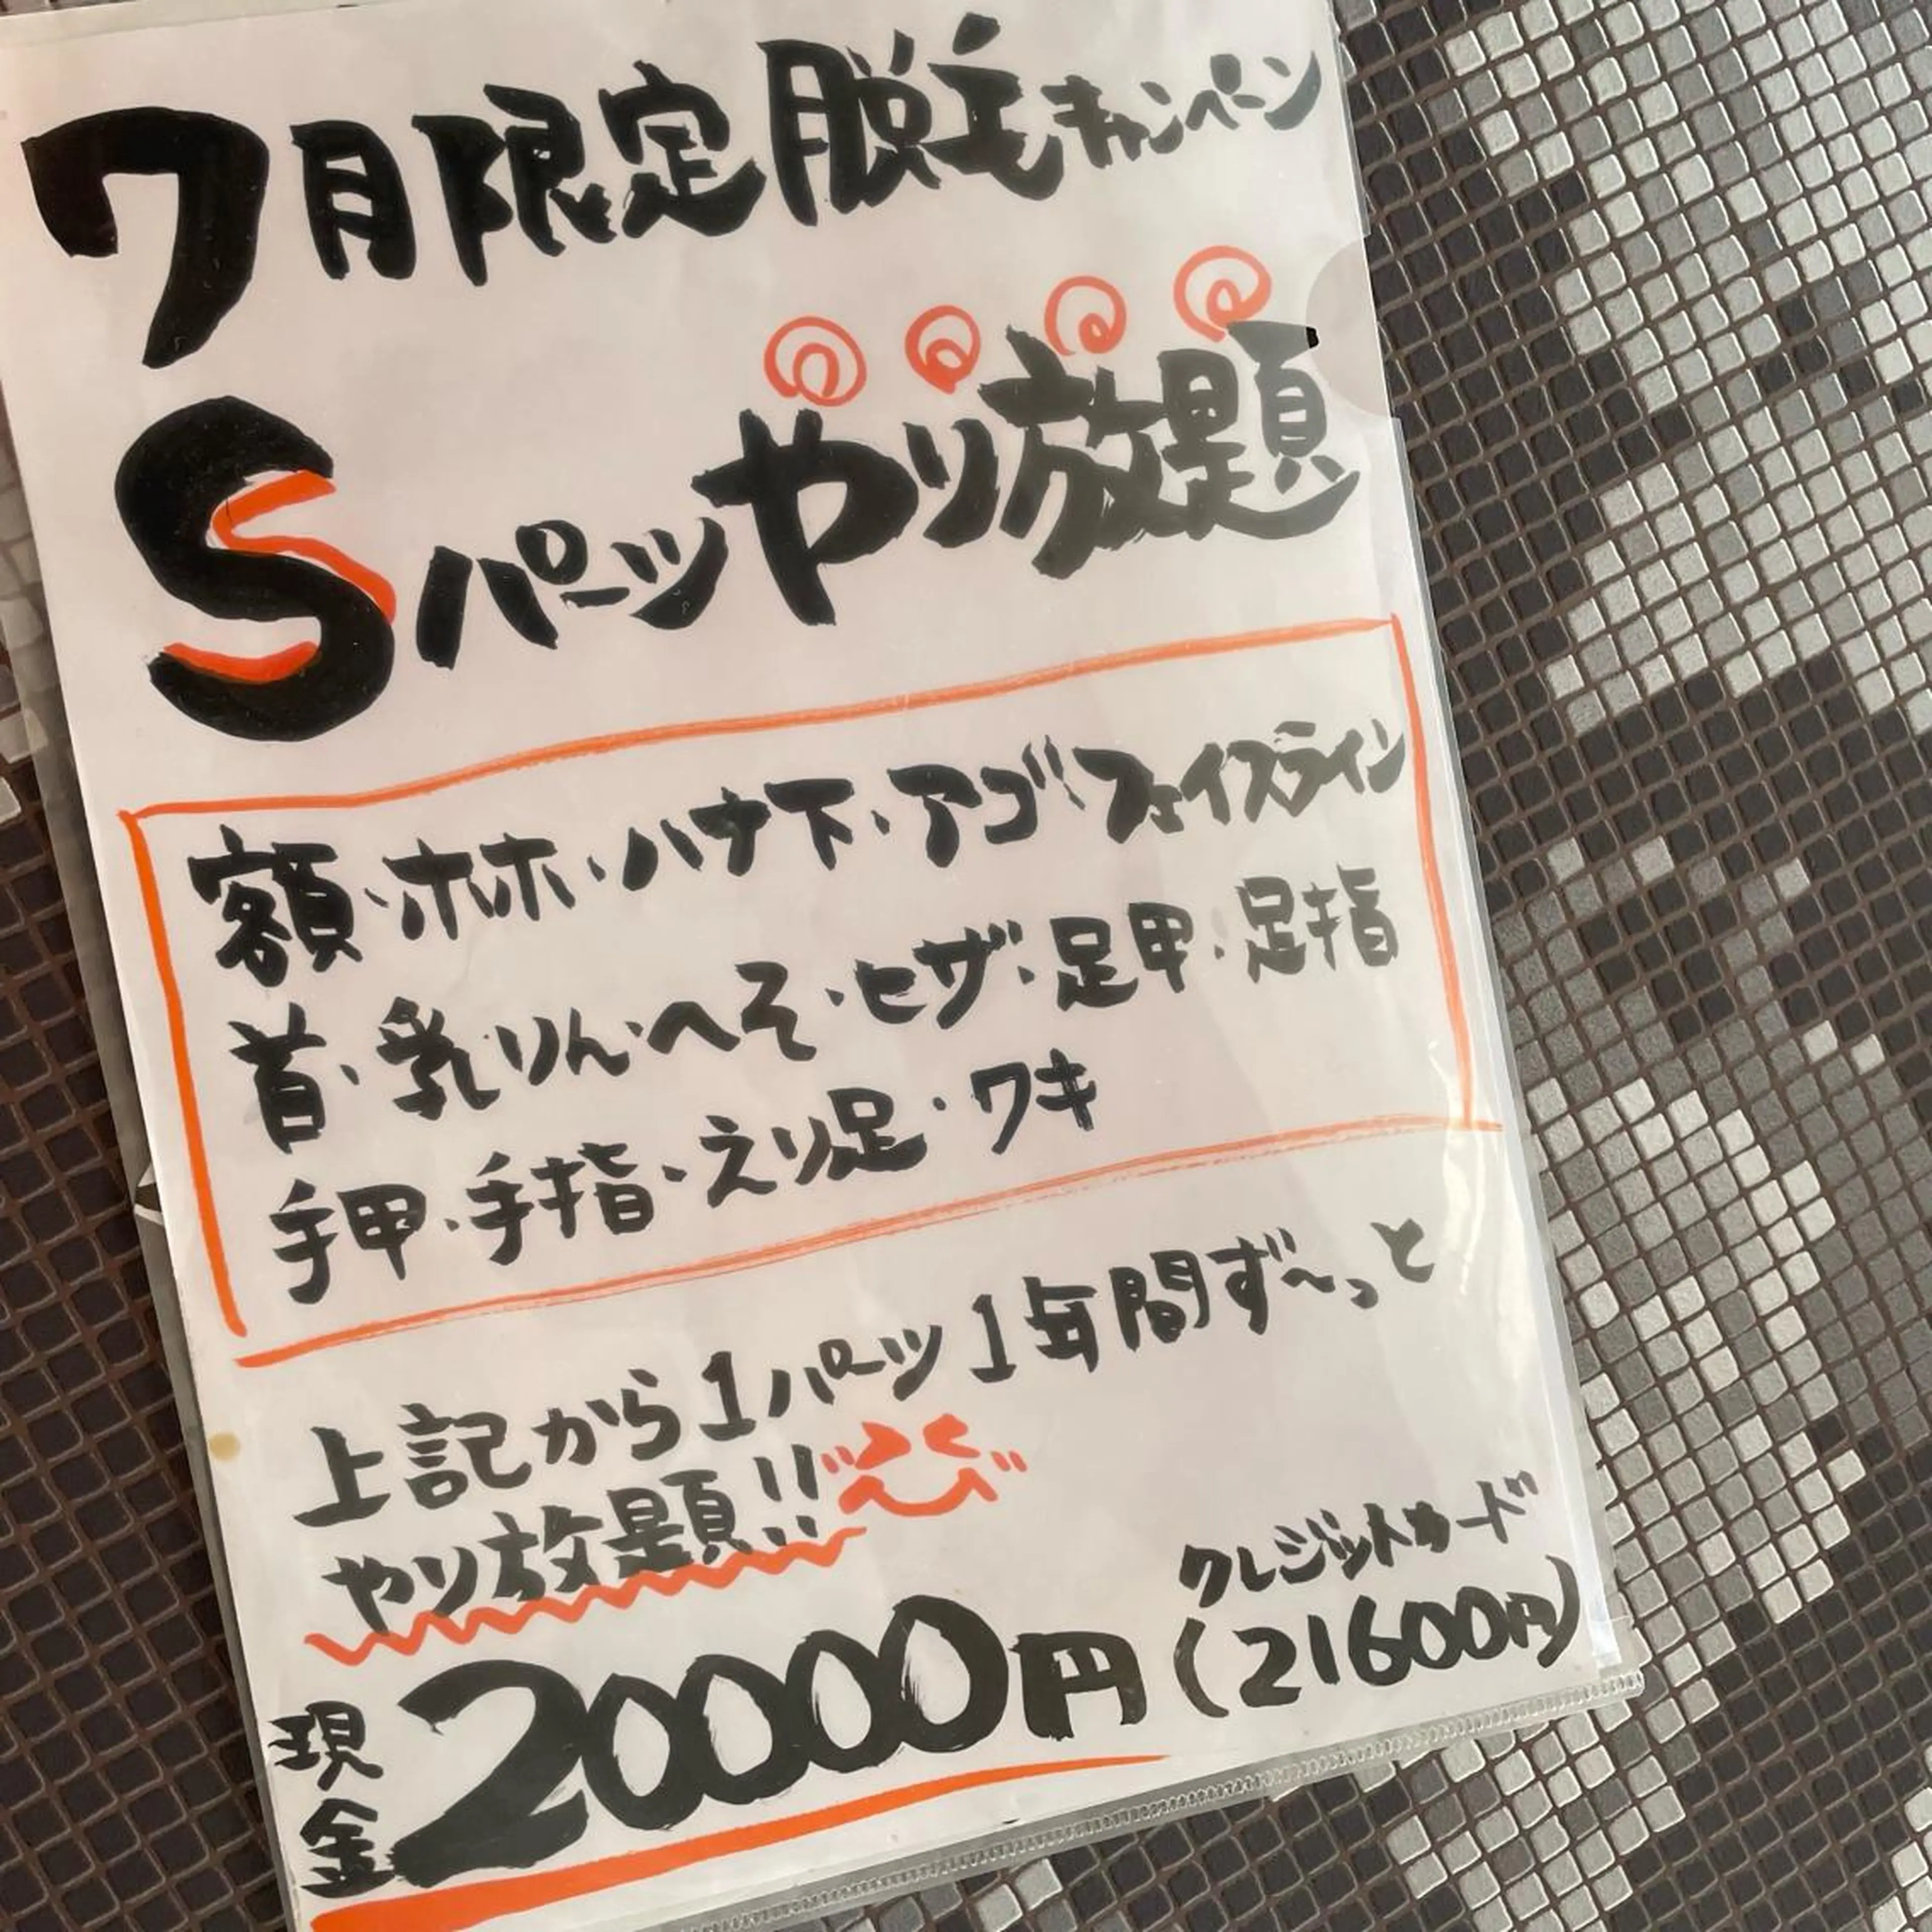 7月限定脱毛キャンペーン
Sパーツやり放題
額・ホホ・ハナ下・アゴ・フェイスライン
首・乳りん・へそ・ヒザ・足甲・足指
手甲・手指・えり足・ワキ
上記から1パーツ1年間ず〜っと
やり放題!!
クレジットカード
現金20000円(21600円)